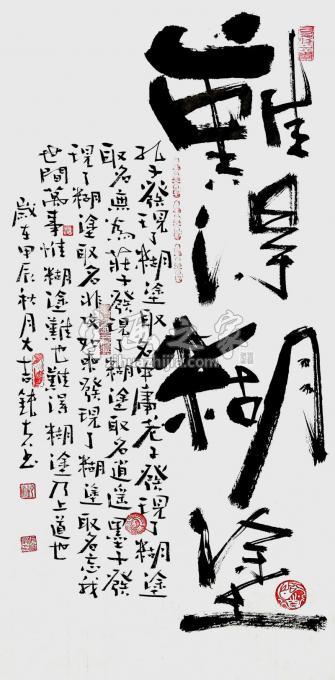 難得糊塗
孔子發現了糊塗取名中庸老子發現了糊塗
取名無為莊子發現了糊塗取名逍遥墨子發
現了糊塗取名非攻如來發現了糊塗取名忘我
世間萬事惟糊塗難也難得糊塗乃上道也
歲在甲辰秋月大吉